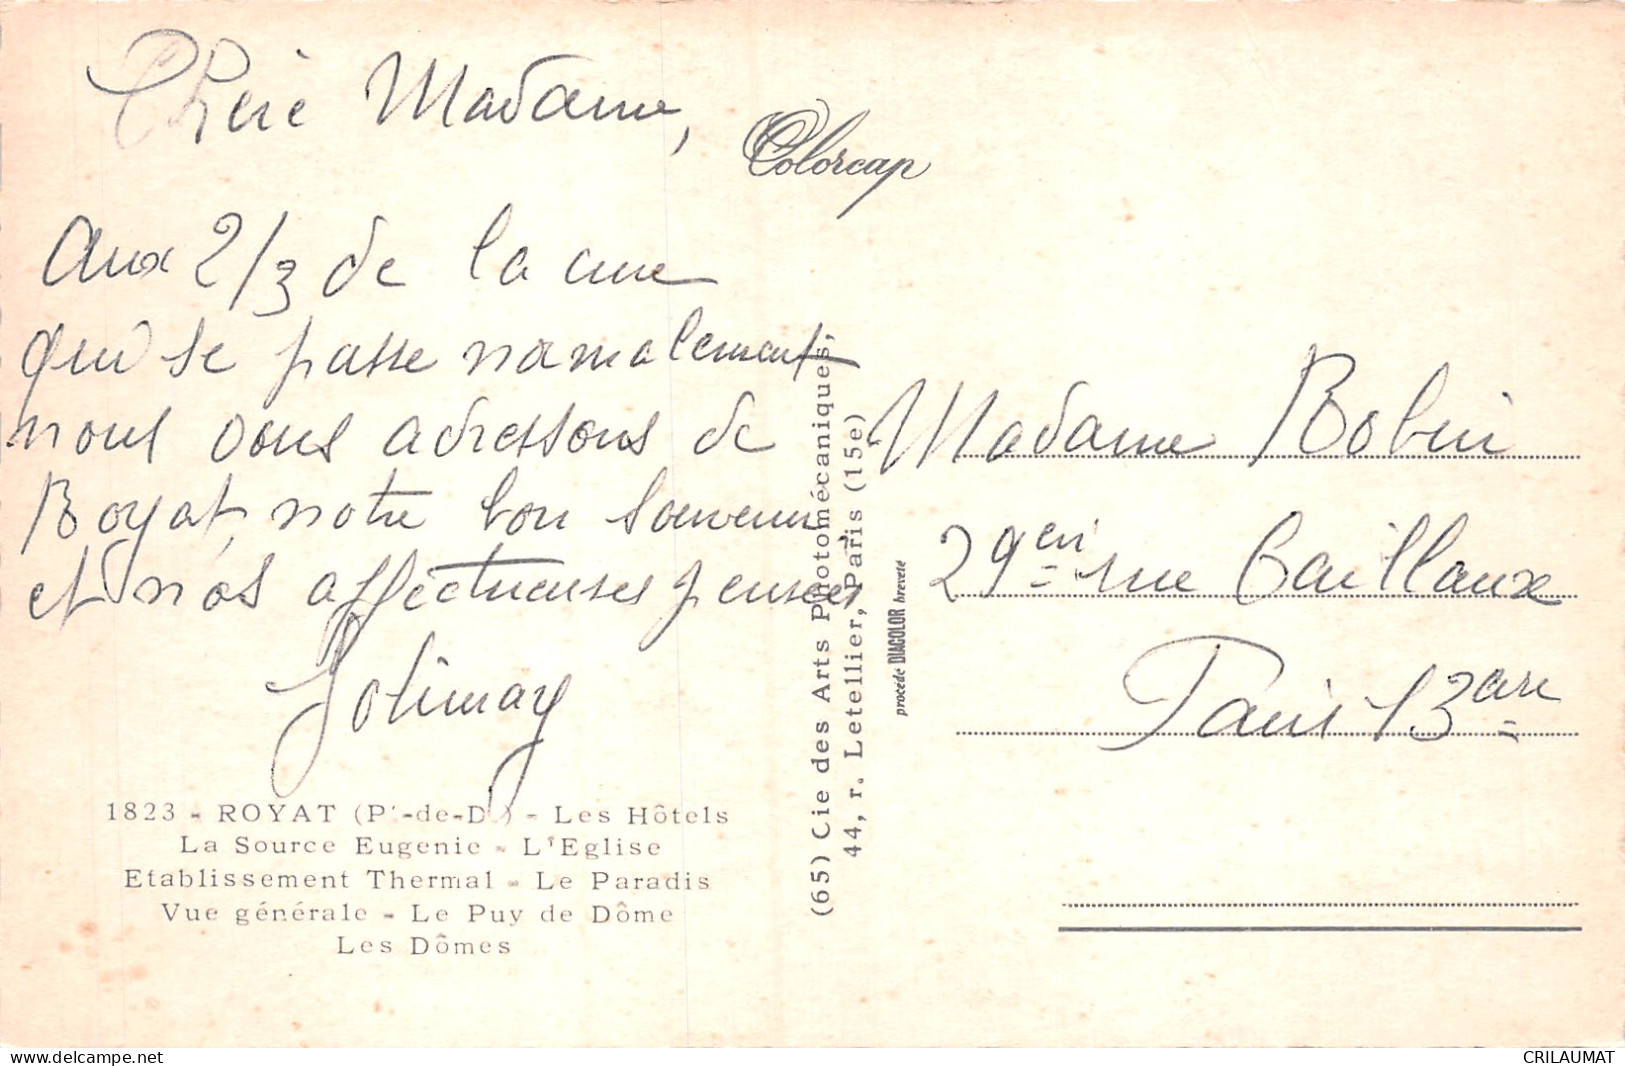 Chère Madame,
Aux 2/3 de la cure
qui se passe normalement
nous vous adressons de
Royat, notre bon souvenir
et nos affectueuses pensées
Jolimay
1823 - ROYAT (Pt-de-De) - Les Hôtels
La Source Eugenie - L'Eglise
Etablissement Thermal - Le Paradis
Vue générale - Le Puy de Dôme
Les Dômes
Colorcap
(65) Cie des Arts Photomécaniques.
44, r. Letellier, Paris (15e)
procédé DIAGOLOR breveté
Madame Bobin
29 rue Caillaux
Paris 13
CRILAUMAT
www.delcampe.net